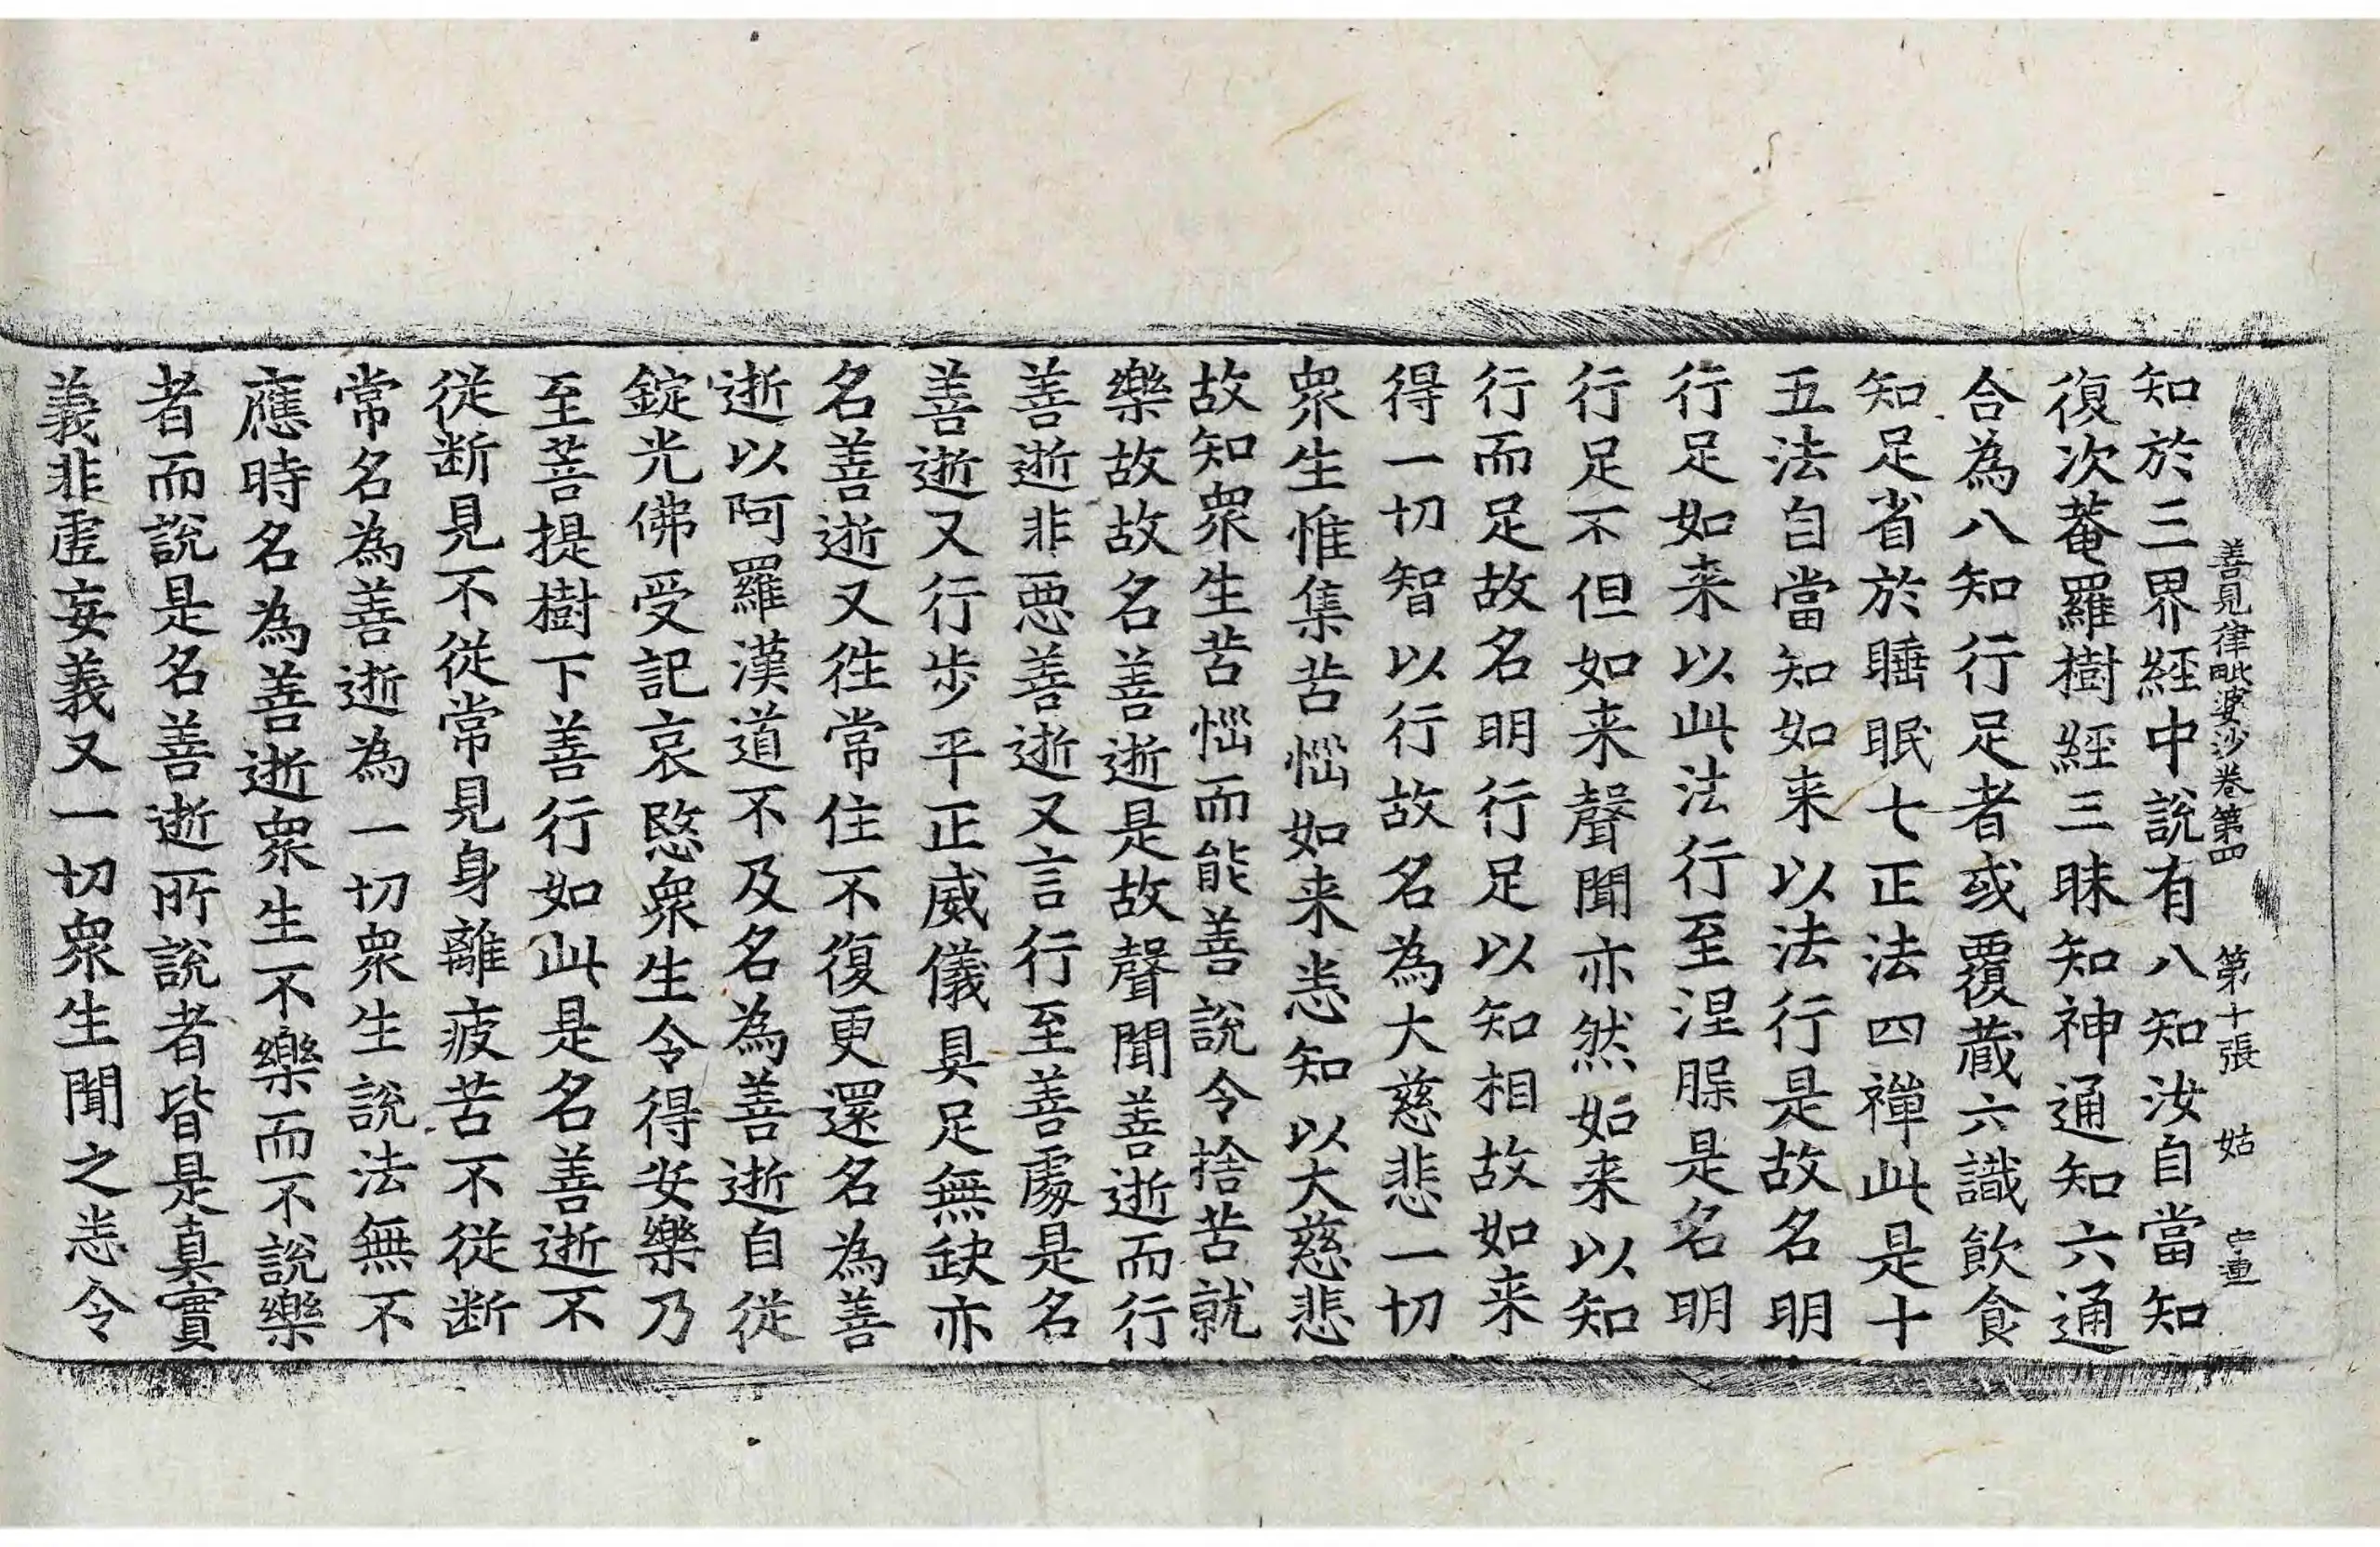 善見律毗婆沙卷第四　第十張　姑
知於三界經中說有八知汝自當知
復次菴羅樹經三昧知神通知六通
合為八知行足者或覆蔵六識飲食
知足省於睡眠七正法四禪此是十
五法自當知如来以法行是故名明
行足如来以此法行至涅槃是名明
行足不但如来聲聞亦然如来以知
行而足故名明行足以知相故如来
得一切智以行故名為大慈悲一切
衆生惟集苦惱如来恙知以大慈悲
故知衆生苦惱而能善說令捨苦就
樂故故名善逝是故聲聞善逝而行
善逝非惡善逝又言行至善處是名
善逝又行步平正威儀具足無缺亦
名善逝又徃常住不復更還名為善
逝以阿羅漢道不及名為善逝自從
錠光佛受記哀愍衆生令得安樂乃
至菩提樹下善行如此是名善逝不
從断見不從常見身離疲苦不從断
常名為善逝為一切衆生說法無不
應時名為善逝衆生不樂而不說樂
者而說是名善逝所說者皆是真實
義非虛妄義又一切衆生聞之恙令